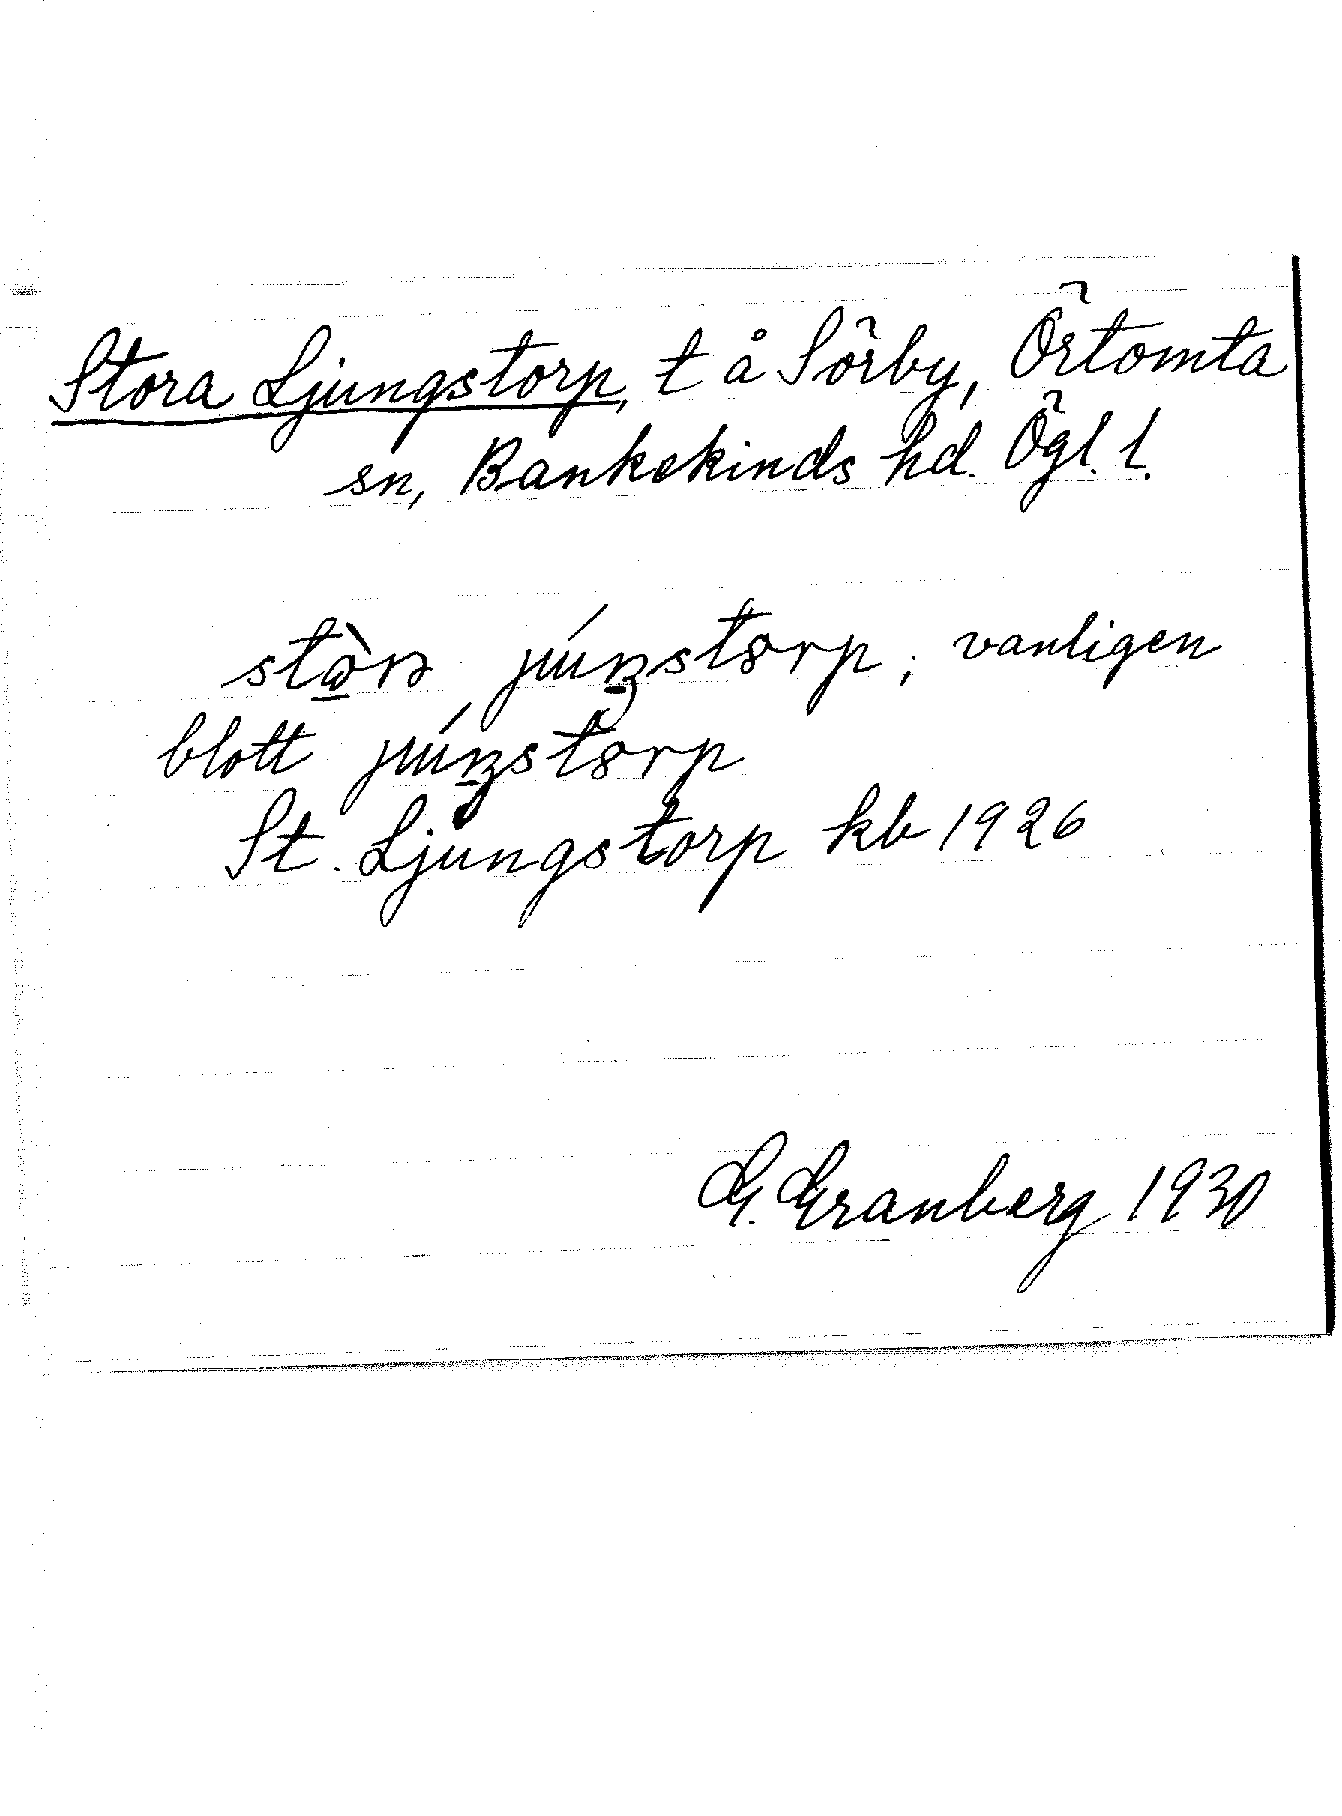 Stora Ljungstorp, t å Sörby, Örtomta
sn, Bankekinds hd. Ögl. l.
vanligen
blott
St. Ljungstorp kb 1926
G. Granberg 1930